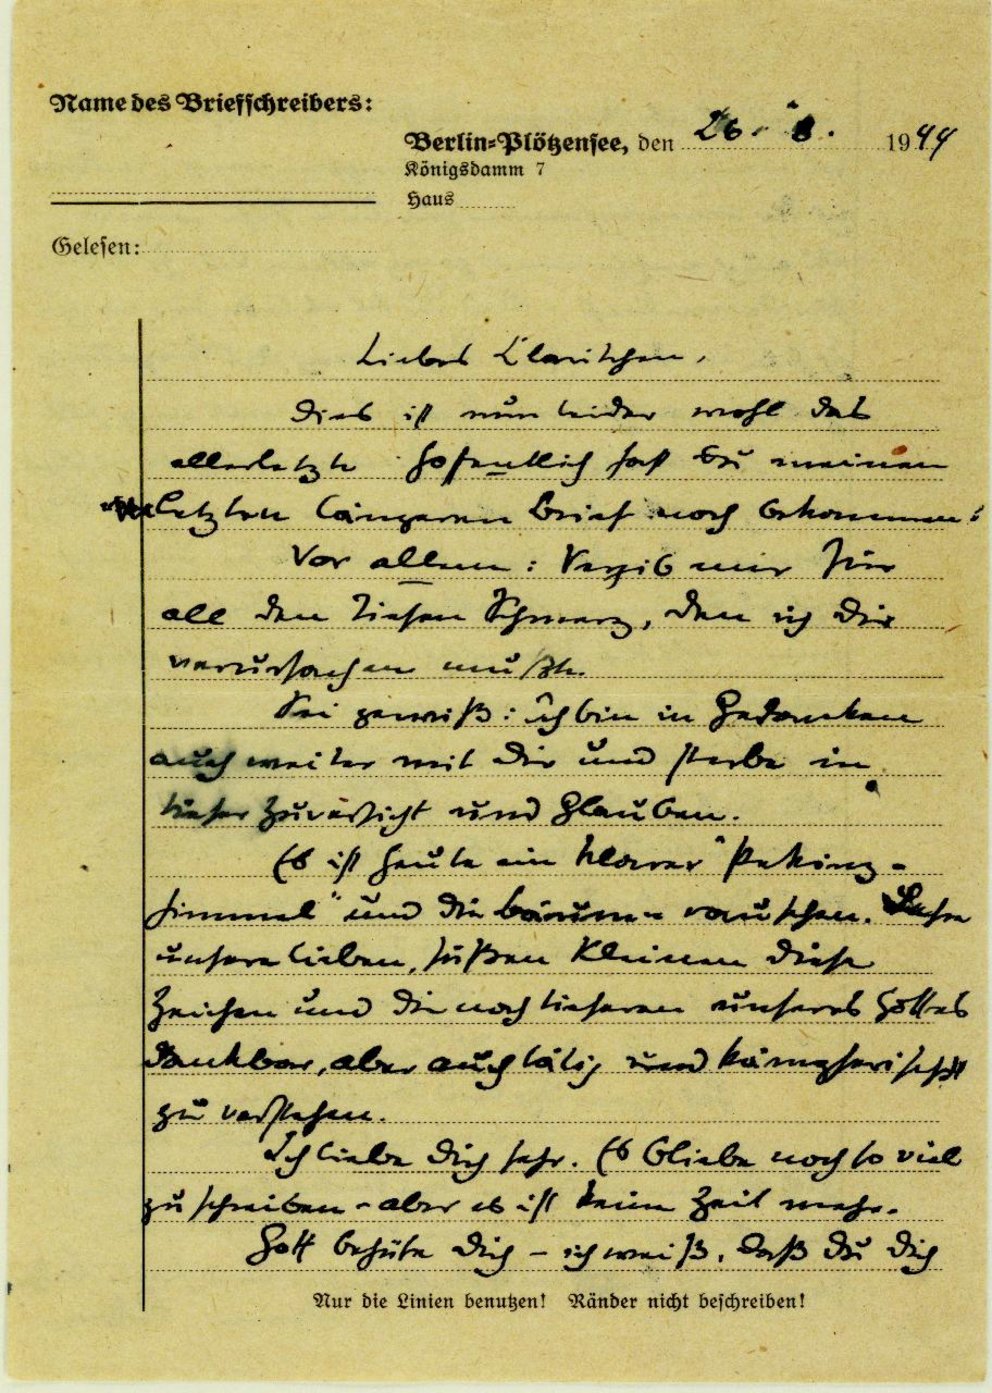 Name des Briefschreibers:
Berlin-Plötzensee, den 26. 8. 1944
Königsdamm 7
Haus
Gelesen:
Liebes Claritchen,
Dies ist nun leider wohl das
allerletzte. Hoffentlich hast Du meinen
letzten längeren Brief noch bekommen!
Vor allem: Vergib mir für
all den tiefen Schmerz, den ich Dir
verursachen mußte.
Sei gewiß: ich bin in Gedanken
auch weiter mit Dir und sterbe in
tiefer Zuversicht und Glauben.
Es ist heute ein klarer "Peking-
himmel" und die Bäume rauschen. Lehre
unsere lieben, süßen Kleinen diese
Zeichen und die noch tieferen unseres Gottes
dankbar, aber auch tätig und kämpferisch
zu verstehen.
Ich liebe Dich sehr. Es bliebe noch so viel
zu schreiben - aber es ist keine Zeit mehr.
Gott behüte Dich – ich weiß, daß Du Dich
Nur die Linien benutzen! Ränder nicht beschreiben!